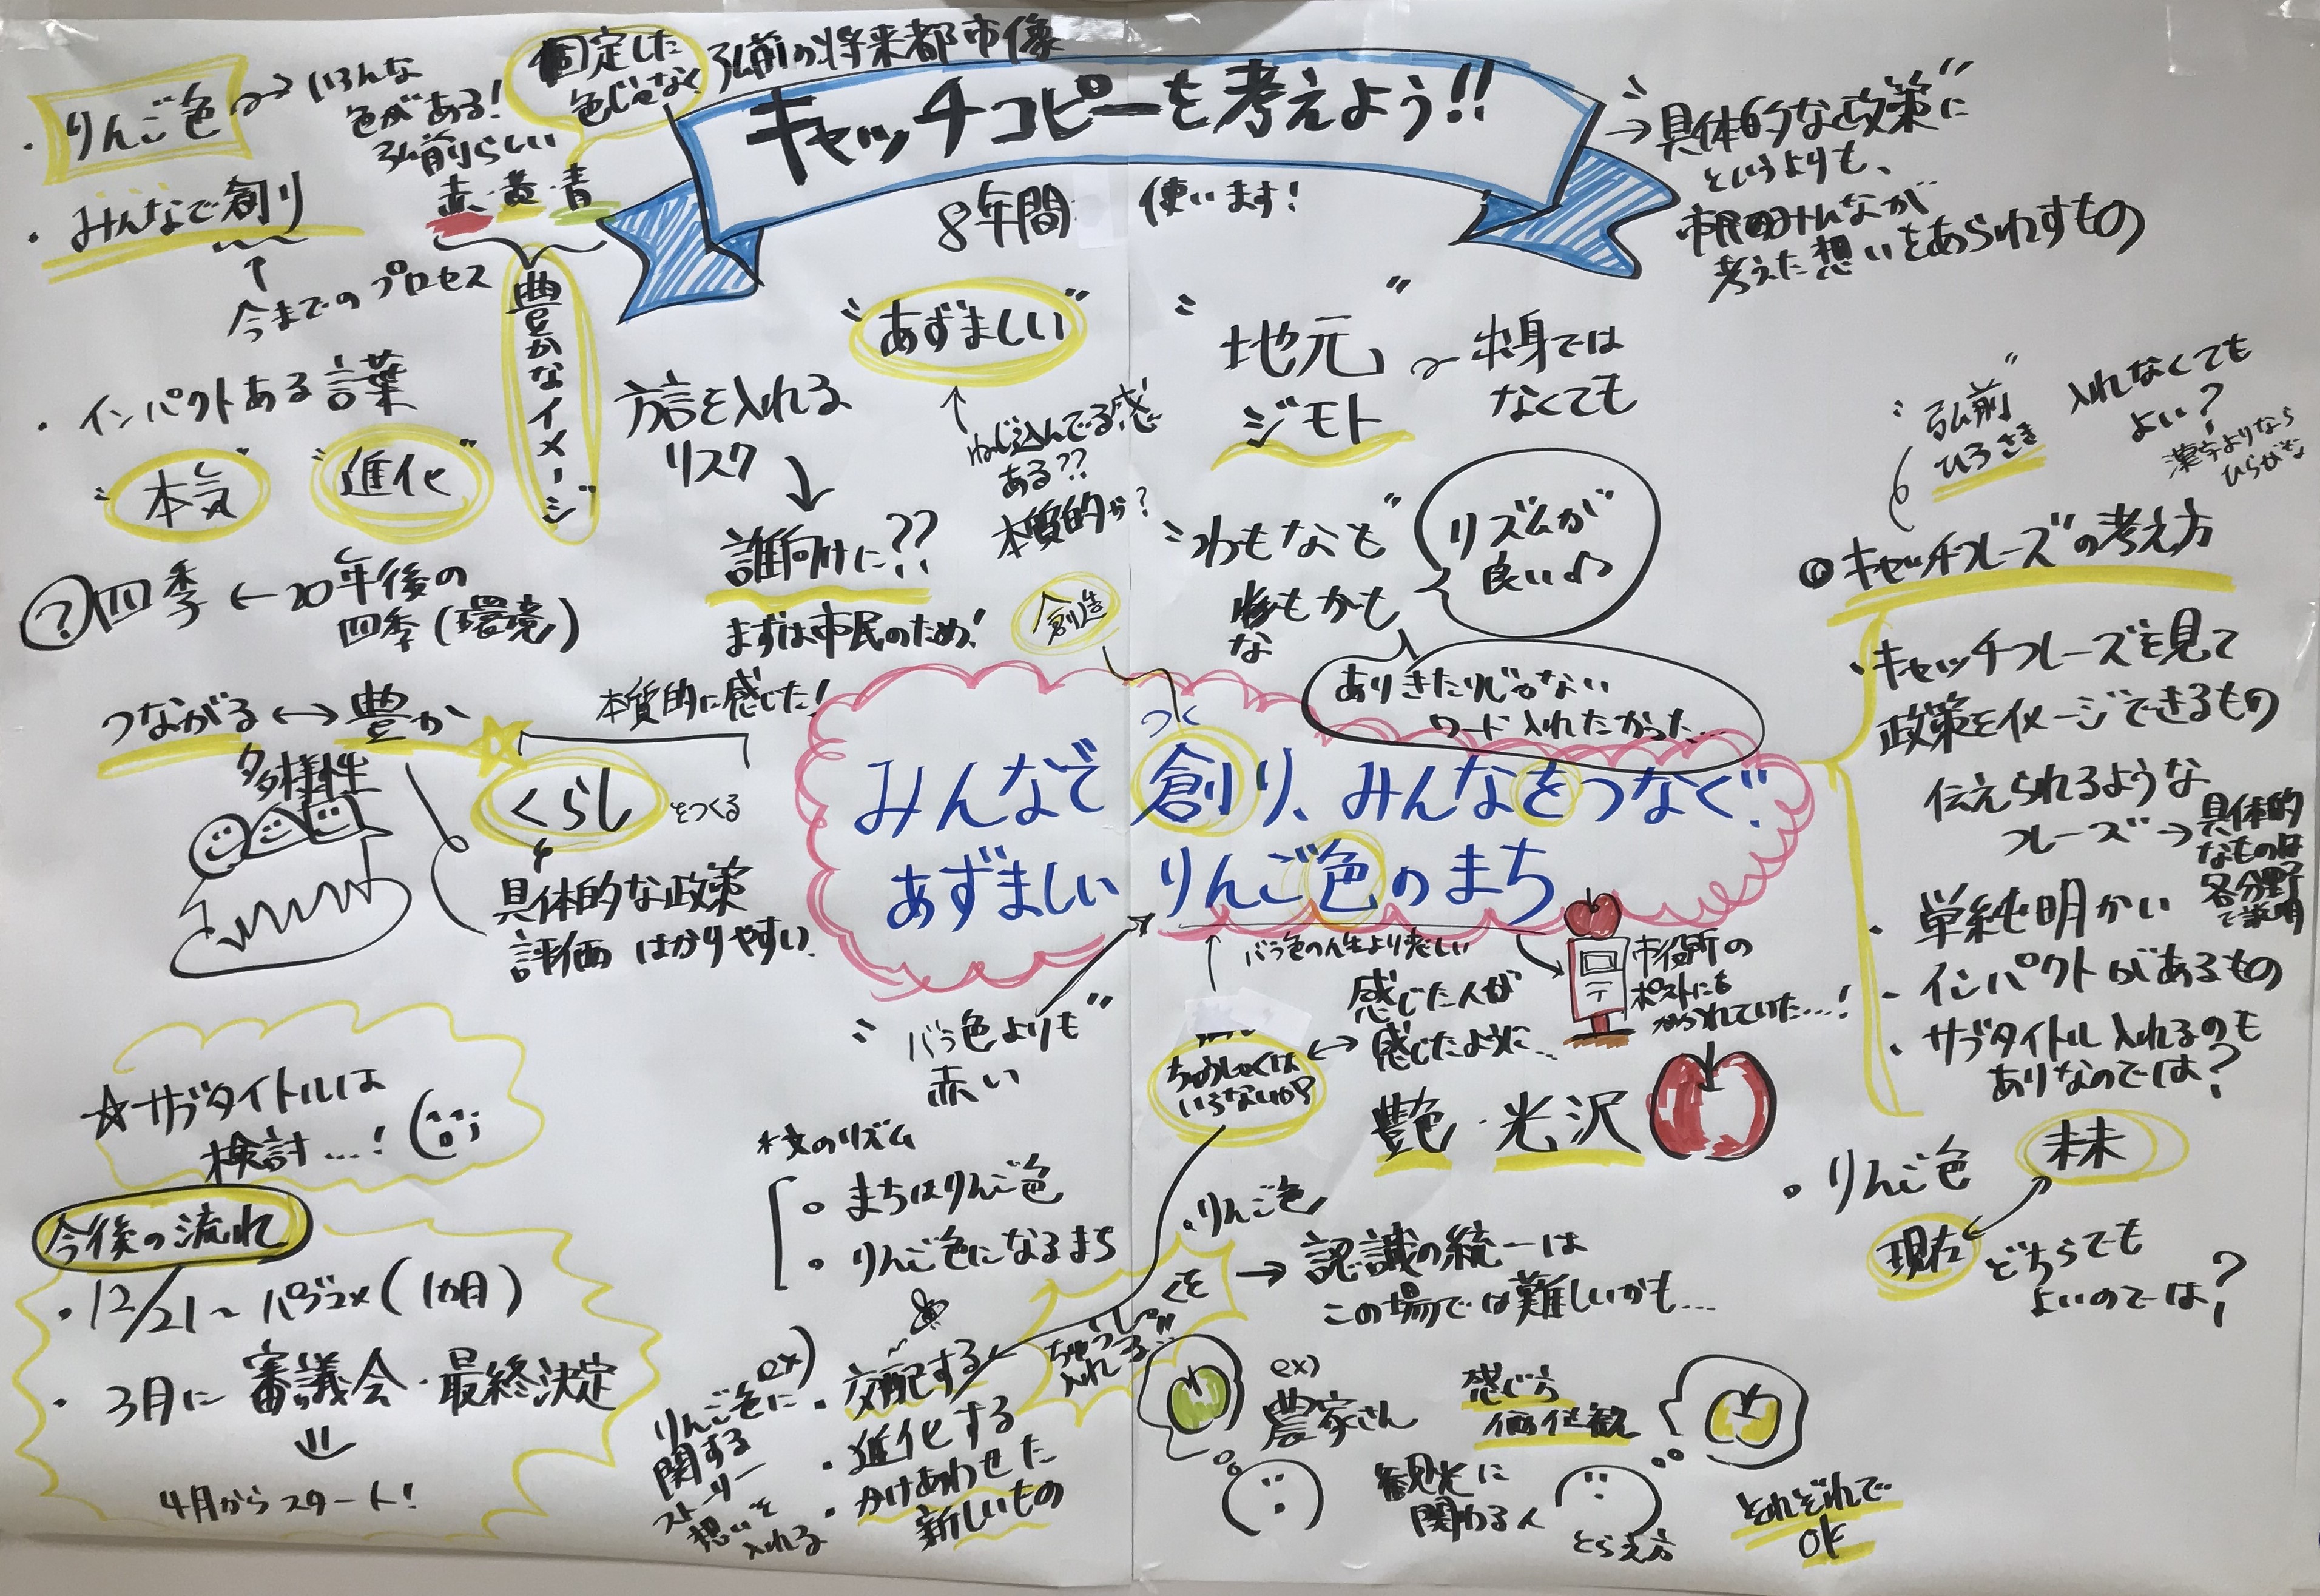 弘前の将来都市像
キャッチコピーを考えよう!!
8年間 使います!
・りんご色
いろんな
色がある!
弘前らしい
赤・黄・青
固定した
色じゃなく
豊かなイメージ
・みんなで創り
↑
今までのプロセス
・インパクトある言葉
"本気" "進化"
?四季 ← 20年後の
四季(環境)
つながる ↔ 豊か
多様性
本質的に感じた!
くらし をつくる
具体的な政策
評価 はかりやすい
方言を入れる
リスク
↓
誰向けに??
まずは市民のため!
"あずましい"
↑
ねじ込んでる感
ある??
本質的か?
"地元"
ジモト
出身では
なくても
"わもなも"
なもかも
な
リズムが
良い♪
ありきたりじゃない
ワード入れたかった…
→具体的な政策に
というよりも、
市民のみんなが
考えた想いをあらわすもの
"弘前"
ひろさき
入れなくても
よい?
漢字よりなら
ひらがな
◎キャッチフレーズの考え方
・キャッチフレーズを見て
政策をイメージできるもの
伝えられるような
フレーズ→具体的
なものは
各分野
で説明
・単純明かい
・インパクトがあるもの
・サブタイトル入れるのも
ありなのでは?
・りんご色
未来
現在
どちらでも
よいのでは?
創造
つく
みんなで創り、みんなをつなぐ
あずましいりんご色のまち
バラ色の人生より楽しい
"バラ色よりも"
赤い
ちゅうしゃくは
いらないか?
↔
感じた人が
感じたように…
市役所の
ポストにも
かざられていた…!
艶・光沢
☆サブタイトルは
検討…!
今後の流れ
・12/21~パブコメ(1カ月)
・3月に審議会・最終決定
⇓
4月からスタート!
*文のリズム
・まちはりんご色
・りんご色になるまち
ex)
りんご色に
関する
ストーリー
想いを
入れる
・交配する
・進化する
・かけあわせた
新しいもの
入れる
・りんご色
→認識の統一は
この場では難しいかも…
ex)
農家さん
感じ方
価値観
観光に
関わる人
とらえ方
それぞれで
OK